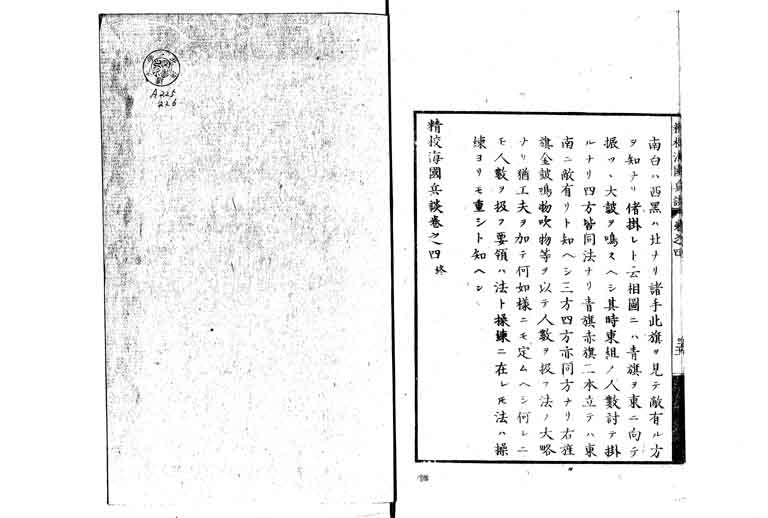 南白ハ西黒ハ北ナリ諸手此旗ヲ見テ敵有ル方
ヲ知ナリ偖掛レト云相圖ニハ青旗ヲ東ニ向テ
振ツヽ大皷ヲ鳴スヘシ其時東組ノ人數討テ掛
ルナリ四方皆同法ナリ青旗赤旗二本立テハ東
南ニ敵有リト知ヘシ三方四方亦同方ナリ右旌
旗金皷鳴物吹物等ヲ以テ人數ヲ扱フ法ノ大略
ナリ猶工夫ヲ加テ何如様ニモ定ムヘシ何レニ
モ人數ヲ扱フ要領ハ法ト操練ニ在レ𪜈法ハ操
練ヨリモ重シト知ヘシ
精校海國兵談卷之四 終
A225
226